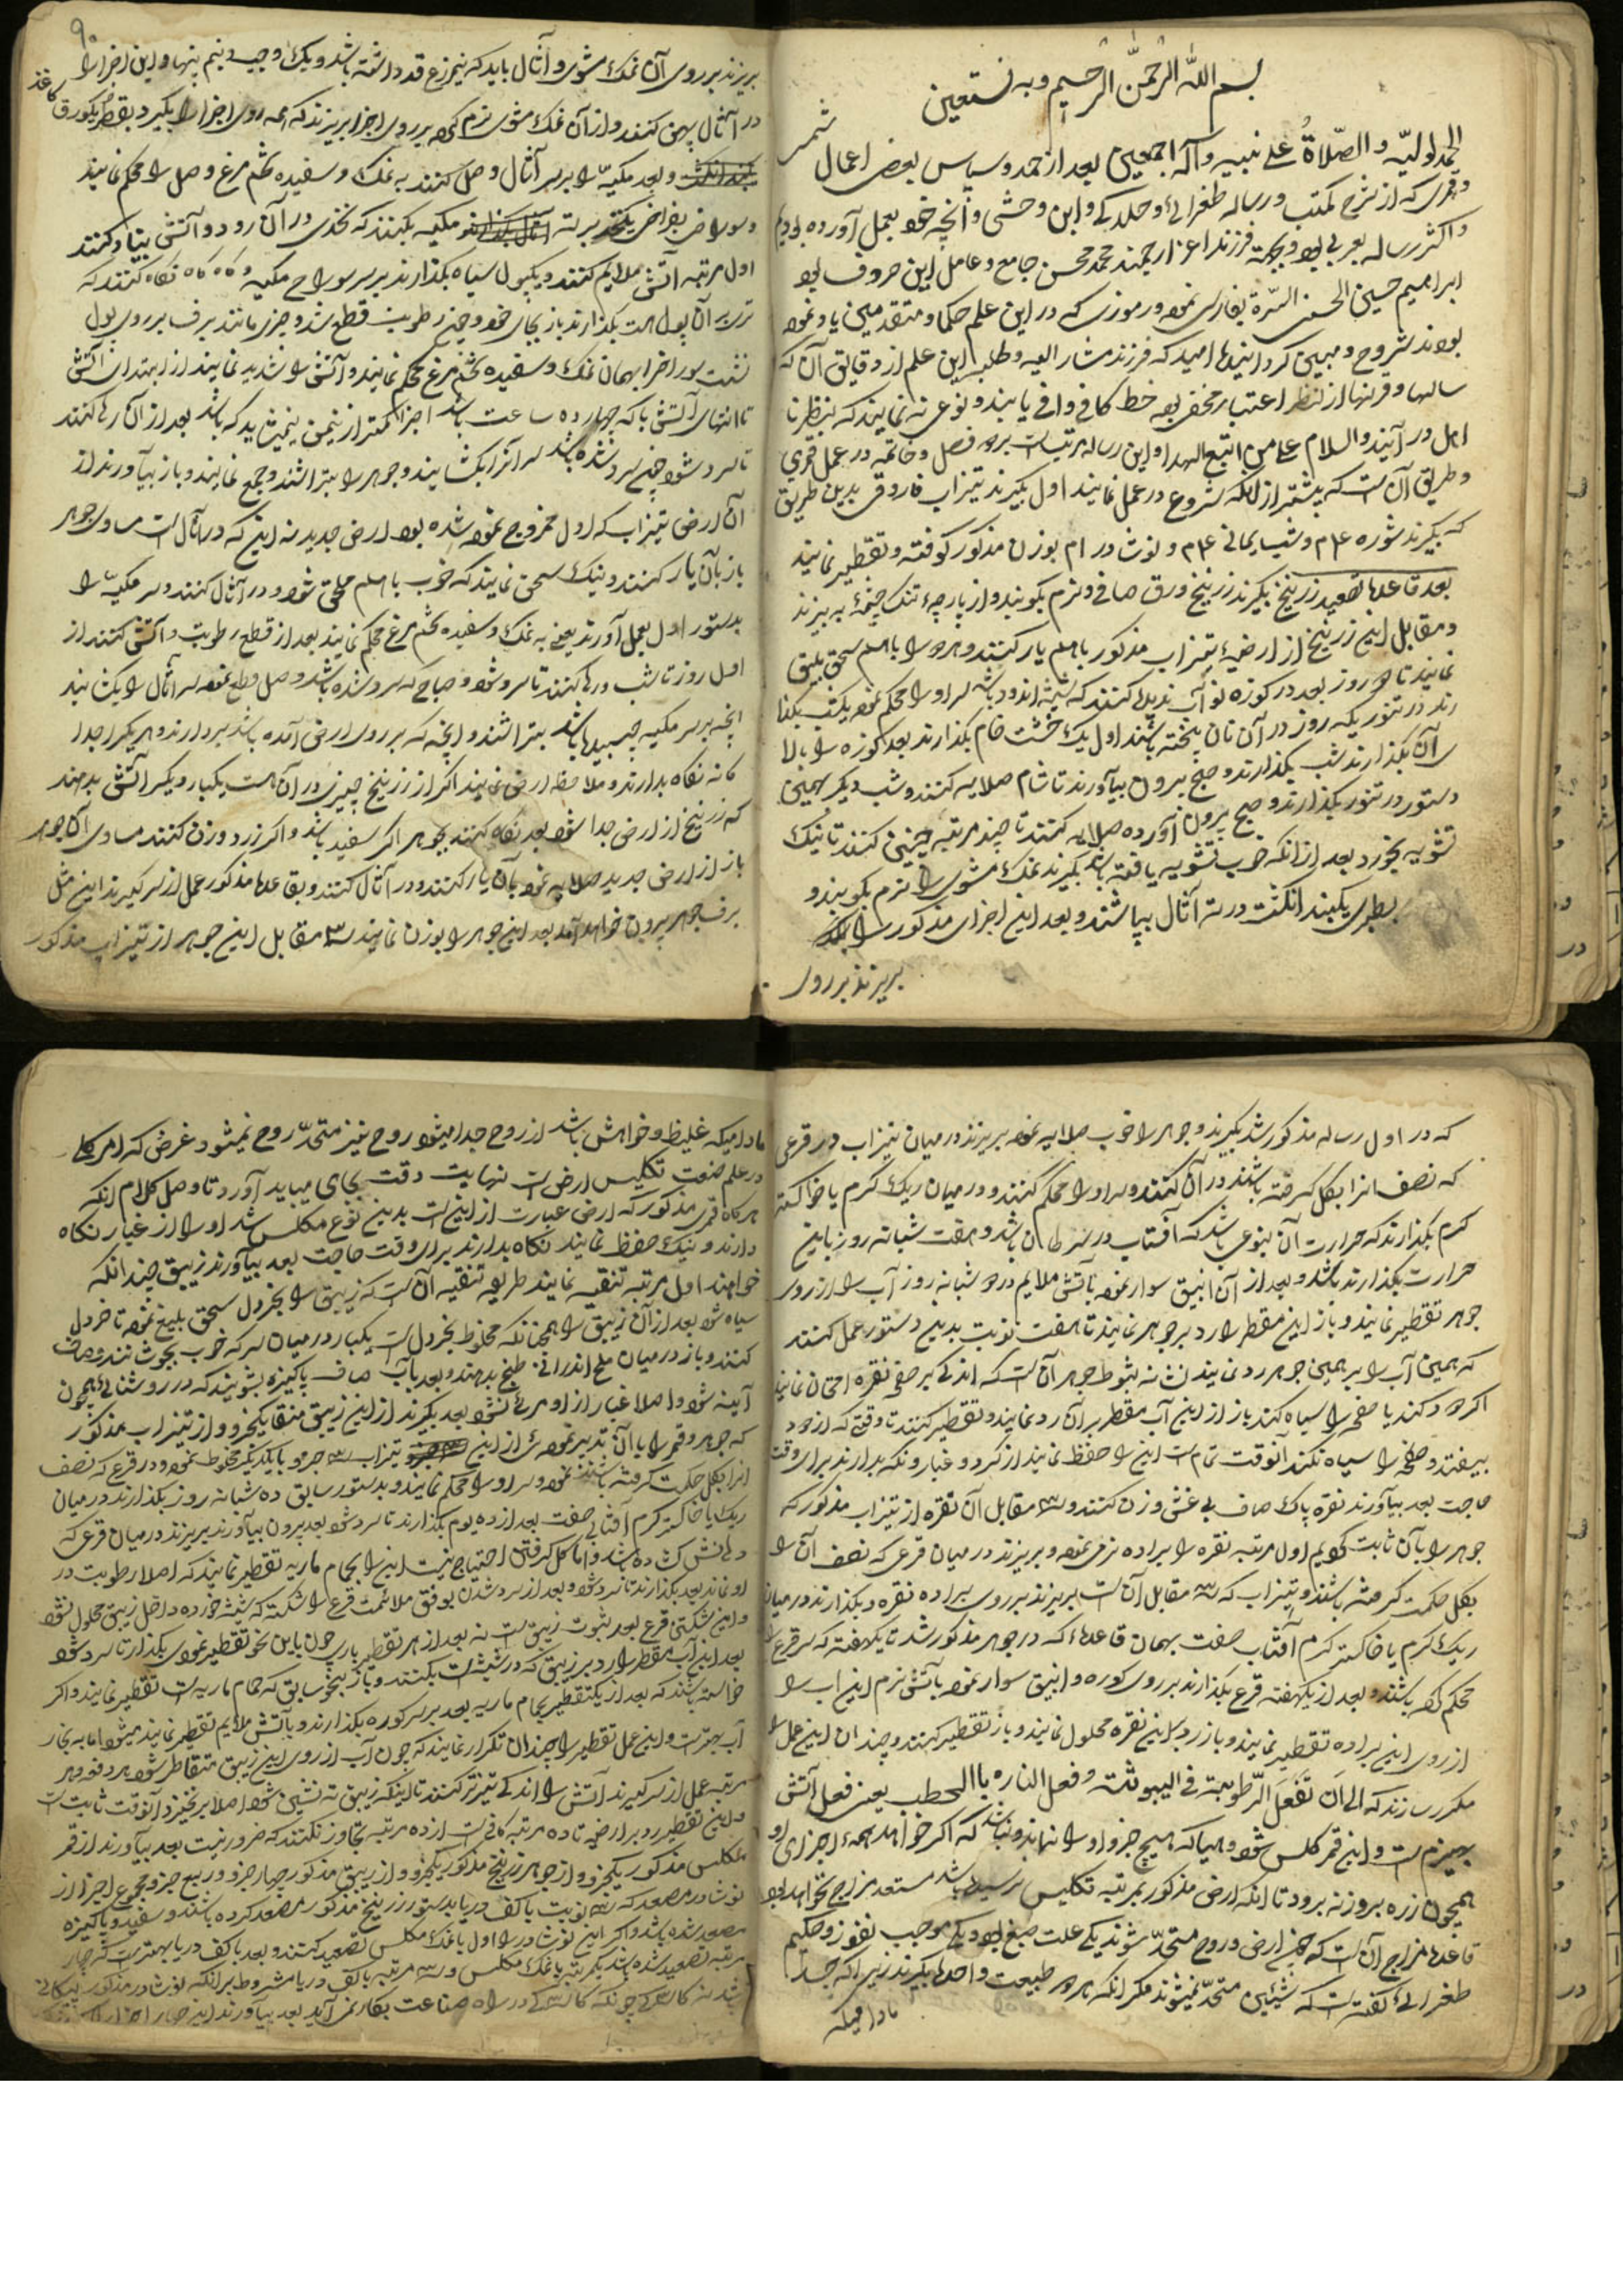 بسم الله الرحمن الرحیم وبه نستعین
الحمد لولیه والصلاة علی نبیه وآله اجمعین بعد از حمد و سپاس بعض اعمال شمسی
وقمری که از شرح مکتب و رساله طغرائی و جلدکی و ابن وحشی و آنچه خود بعمل آورده بودیم
واکثر رساله بعربی بود و بجهة فرزند اعز ارجمند محمد محسن جامع و عامل این حروف بود
ابراهیم حسین الحسنی بفارسی نموده و رموزی که در این علم حکما و متقدمین یاد نموده
بودند مشروح و مبین گردانید امید که فرزند مشار الیه و طلبه این علم از دقایق آن که
سالها و قرنها از نظر اعتبار مخفی بوده حظ کافی وافی یابند و نوعی نه نمایند که بنظر نا
اهل در آیند والسلام علی من اتبع الهدی و این رساله مرتب است بر دو فصل و خاتمه در عمل قمری
وطریق آن است که پیشتر از آنکه شروع در عمل نمایند اول بگیرند تیزاب فاروقی بدین طریق
که بگیرند شوره و شب یمانی و نوشادر بوزن مذکور کوفته و تقطیر نمایند
بعد قاعده تصعید زرنیخ بگیرند زرنیخ ورق صافی و نرم بکوبند و از پارچه تنک چشمه به بیزند
ومقابل این زرنیخ از ارضیه تیزاب مذکور باهم یار کنند و هر دو را باهم سحق بلیغ
نمایند تا دو روز بعد در کوزه نو آب ندیده کنند که شیشه اندود باشد سر او را محکم نموده یکشب بگذا
رند در تنور یکه روز در آن نان پخته باشند اول یک خشت خام بگذارند بعد کوزه را بالا
آن بگذارند شب بگذارند و صبح بیرون بیاورند تا شام صلایه کنند و شب دیگر همین
دستور در تنور بگذارند و صبح بیرون آورده صلایه کنند تا چند مرتبه چنین کنند تا نیک
تشویه بخورد بعد از آنکه خوب تشویه یافته باشد بگیرند نمک مشوی را نرم بکوبند و
بطبری یکبند انگشت در ته آثال بپاشند و بعد این اجزای مذکور را
بریزند بر روی
۹۰
بریزند بر روی آن نمک مشوی و آثال باید که نیم زرع قد داشته باشد و یک وجب و نیم پهنا و این اجزا را
در آثال پهن کنند و از آن نمک مشوی نرم کرده بر روی اجزا بریزند که همه روی اجزا را بگیرد بقطر یکورق کاغذ
و بعد مکبه را بر سر آثال وصل کنند به نمک و سفیده تخم مرغ وصل را محکم نمایند
مکبه بکنند که نخدی در آن رود و آتش بنیاد کنند
اول مرتبه آتش ملایم کنند و یکپول سیاه بگذارند بر سر سوراخ مکبه و گاه گاه نگاه کنند که
تری بر آن پول هست بگذارند باز بجای خود و چون رطوبت قطع شد و چیزی مانند برف بر روی پول
نشست سوراخ را بهمان نمک و سفیده تخم مرغ محکم نمایند و آتش را شدید نمایند از ابتدای آتش
تا انتهای آتش باید که چهارده ساعت باشد اجزا کمتر از نیمن نمیشاید که باشد بعد از آن رها کنند
تا سرد شود چون سرد شده باشد سر آنرا بگشایند و جوهر را بتراشند و جمع نمایند و باز بیاورند از
آن ارض تیزاب که اول ممزوج نموده شده بود ارض جدید نه این که در آثال است مساوی جوهر
باز بآن یار کنند و نیک سحق نمایند که خوب باهم ملحق شود و در آثال کنند و سر مکبه را
بدستور اول بعمل آورند یعنی به نمک و سفیده تخم مرغ محکم نمایند بعد از قطع رطوبت و آتش کنند از
اول روز تا شب و رها کنند تا سرد شود و صباح که سرد شده باشد وصل قطع نموده سر آثال را بگشایند
آنچه بر سر مکبه چسبیده باشد بتراشند و آنچه که بر روی ارض آمده باشد بردارند و هر یکی را جدا
گانه نگاه بدارند و ملاحظه ارض نمایند اگر از زرنیخ چیزی در آن هست یکبار دیگر آتش بدهند
که زرنیخ از ارض جدا شود بعد نگاه کنند بجوهر اگر سفید باشد و اگر زرد وزن کنند مساوی آن جوهر
باز از ارض جدید صلایه نموده بآن یار کنند و در آثال کنند و بقاعده مذکور عمل از سر گیرند این مثل
برف جوهر بیرون خواهد آمد بعد این جوهر را بوزن نمایند سه مقابل این جوهر از تیزاب مذکور
که در اول رساله مذکور شد بگیرند و جوهر را خوب صلایه نموده بریزند در میان تیزاب در قرعی
که نصف آنرا بگل گرفته باشند در آن کنند و سر او را محکم کنند و در میان ریک گرم یا خاکستر
گرم بگذارند که حرارت آن بنوعی باشد که آفتاب در سرطان باشد و هفت شبانه روز باین
حرارت بگذارند باشد و بعد از آن انبیق سوار نموده باتش ملایم در دو شبانه روز آب را از روی
جوهر تقطیر نمایند و باز این مقطر را رد بر جوهر نمایند تا هفت نوبت بدین دستور عمل کنند
که همین آب را بر همین جوهر رد نمایند نشانه ثبوط جوهر آن است که اندکی بر صفحه نقره امتحان نمایند
اگر دود کند یا صفحه را سیاه کند باز از این آب مقطر بر آن رد نمایند و تقطیر کنند تا وقتی که از دود
بیفتد و صفحه را سیاه نکند آنوقت تمام است این را حفظ نمایند از گرد و غبار و نکه بدارند برای وقت
حاجت بعد بیاورند نقره پاک صاف بی غش وزن کنند و سه مقابل آن نقره از تیزاب مذکور که
جوهر را بآن ثابت کردیم اول مرتبه نقره را براده نرمی نموده و بریزند در میان قرعی که نصف آن را
بگل حکمت گرفته باشند و تیزاب که سه مقابل آن است بریزند بر روی براده نقره و بگذارند در میان
ریک گرم یا خاکستر گرم آفتاب صفت بهمان قاعده که در جوهر مذکور شد تا یکهفته که سر قرع را
محکم کرده باشند و بعد از یکهفته قرع بگذارند بر روی کوره و انبیق سوار نموده باتش نرم این آب را
از روی این براده تقطیر نمایند و باز رد بر این نقره محلول نمایند و باز تقطیر کنند و چندان این عمل را
مکرر سازند که الی ان تفعل الرطوبة فی الیبوثت و فعل الناره باالحطب یعنی فعل آتش
بهیزم است و این قمر کلس شود و هیا که هیچ جزو او را نماند و نباشد که اگر خواهد همه اجزای او
همچون زره بروزنه برود تا آنکه ارض مذکور بمرتبه تکلیس نرسیده باشد مستعد مزاج نخواهد بود
قاعده مزاج آن است که چون ارض و روح متحد شوند یکی علت صبغ بود و یکی موجب نفوز و حکیم
طغرائی گفته است که شیئین متحد نمیشوند مگر آنکه هر دو طبیعت واحده بگیرند زیرا که جسد
مادامیکه
مادامیکه غلیظ و خواهش باشد از روح جدا میشود روح نیز متحد روح نمیشود غرض که امر کلی
در علم صنعت تکلیس ارض است نهایت دقت بجای میباید آورد تا وصل کلام آنکه
هر گاه قمری مذکور که ارض عبارت از این است بدین نوع مکلس شد او را از غبار نگاه
دارند و نیک حفظ نمایند نگاه بدارند برای وقت حاجت بعد بیاورند زیبق چندانکه
خواهند اول مرتبه تنقیه نمایند طریقه تنقیه آن است که زیبق را بخردل سحق بلیغ نموده تا خردل
سیاه شود بعد از آن زیبق را همچنانکه مخلوط بخردل است یکبار در میان سرکه خوب بجوشانند و صاف
کنند و باز در میان ملح اندرانی طبخ بدهند و بعد بآب صاف پاکیزه بشویند که در روشنائی همچون
آینه شود و اصلا غبار از او مرئی نشود بعد بگیرند از این زیبق منقا یکجزو و از تیزاب مذکور
که جوهر و قمر را با آن تدبیر نموده از این تیزاب سه جزو با یکدیگر مخلوط نموده و در قرع که نصف
آنرا بگل حکمت گرفته باشند نموده و سر او را محکم نمایند و بدستور سابق ده شبانه روز بگذارند در میان
ریک یا خاکستر گرم آفتابی صفت بعد از ده یوم بگذارند تا سرد شود بعد بیرون بیاورند بریزند در میان قرعی که
دهانش گشاده باشد و اما گل گرفتن احتیاج نیست این را بحمام ماریه تقطیر نمایند که اصلا رطوبت در
او نماند بعد بگذارند تا سرد شود و بعد از سرد شدن بوفق ملائمت قرع را شکسته که شیشه خورده داخل زیبق محلول نشود
و این شکستن قرع بعد ثبوت زیبق است نه بعد از هر تقطیر باری چون باین نحو تقطیر نمودی بگذار تا سرد شود
بعد این آب مقطر را رد بر زیبق که در شیشه است بکنند و باز بنحو سابق که حمام ماریه است تقطیر نمایند و اگر
خواسته باشند که بعد از یکتقطیر بحمام ماریه بعد بر سر کوره بگذارند و باتش ملایم تقطیر نمایند میشود اما به بخار
آب بهتر است و این عمل تقطیر را چندان تکرار نمایند که چون آب از روی این زیبق متقاطر شود هر دفعه و هر
مرتبه عمل از سر گیرند آتش را اندکی تیزتر کنند تا اینکه زیبق ته نشین شود اصلا بر نخیزد آنوقت ثابت است
و این تقطیر رد بر ارضیه تا ده مرتبه کافی است از ده مرتبه تجاوز نکنند که ضرور نیست بعد بیاورند از قمر
مکلس مذکور یکجزو و از جوهر زرنیخ مذکور یکجزو و از زیبق مذکور چهار جزو و ربع جزو مجموع اجزا از
نوشادر مصعد که سه نوبت با کف دریا بدستور زرنیخ مذکور مصعد کرده باشند و سفید و پاکیزه
مصعد شده باشد و اگر این نوشادر را اول با نمک مکلس تصعید کنند و بعد با کف دریا بهتر است